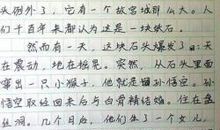 头例外了，它有一个故宫城那么大。人
们千百年来都认为这是一块块石。
然而有一天，这块石头爆发了。天
在震动，地在摇晃。突然，从石头里面
窜出一只小猴子，他就是猴孙悟空。孙
悟空取经回来后与白骨精结婚，住在盘
丝洞，几个月后，他们生了一个女儿，